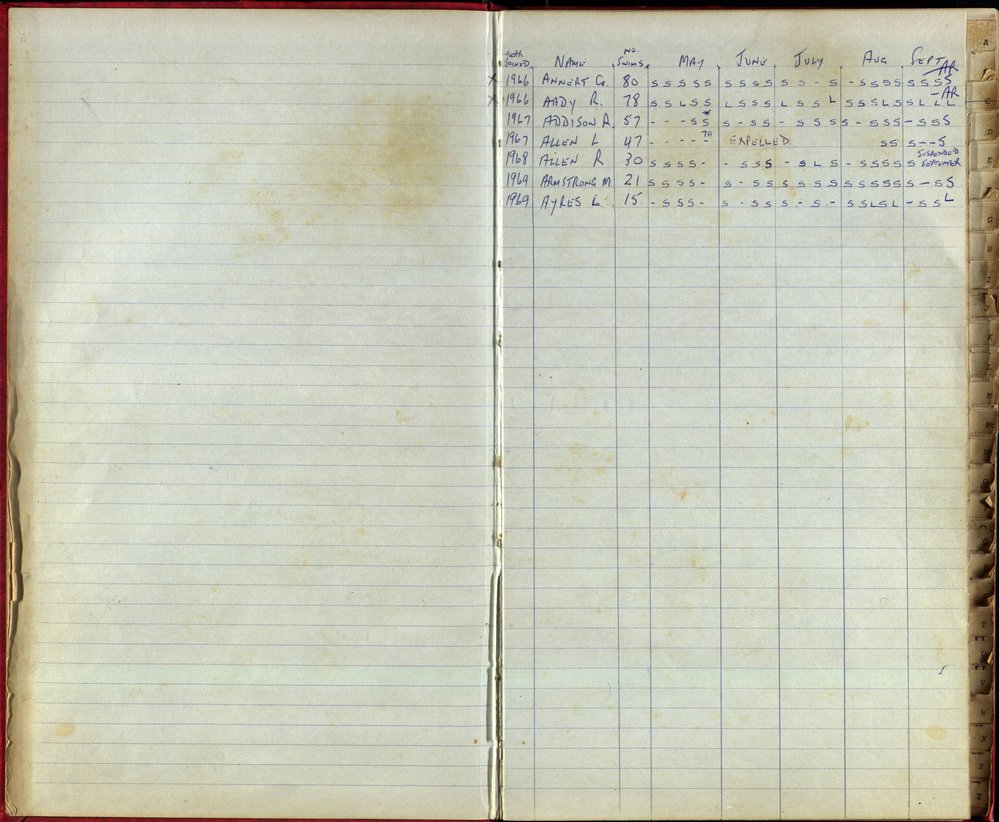 YEAR JOINED NAME NO. SWIMS MAY JUNE JULY AUG SEPT AR
X 1966 ANNERT G. 80 S S S S S S S S S S S S - S - S S S S S S S S
X 1966 AADY R. 78 S S L S S L S S S L S S L S S S L S S L L L - AR
1967 ADDISON A. 57 - - - S S S - S S - S S S S - S S S - S S S
1967 ALLEN L 47 - - - - - 7A EXPELLED S S S - - S
1968 ALLEN R 30 S S S S - - S S S - S L S - S S S S S SUSPENDED SEPTEMBER
1969 ARMSTRONG M 21 S S S S - S - S S S S S S S S S S S S - S S
1969 AYRES L. 15 - S S S - S - S S S - S - S S L S L - S S L
A
C
D
E
G
H
I
J
K
L
M
T
V
W
X
Y
Z